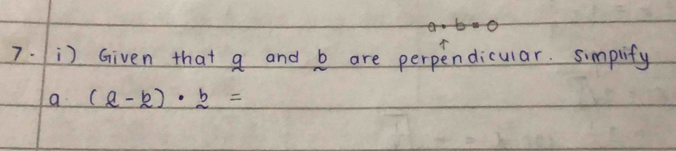 a · b = 0
7. i) Given that a and b are perpendicular. simplify
a. (a - b) · b =